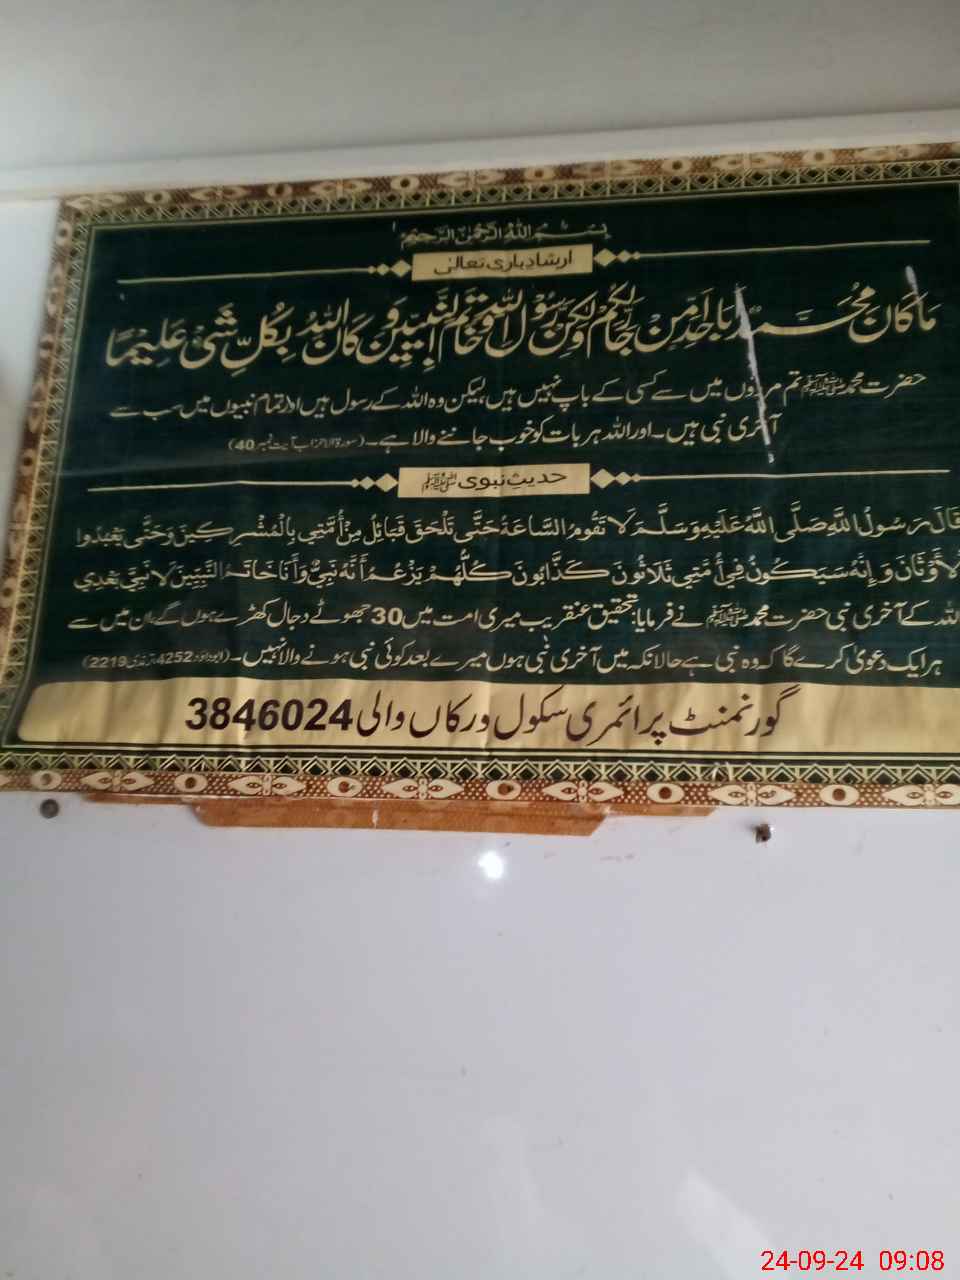 بِسْمِ اللّٰهِ الرَّحْمٰنِ الرَّحِيْمِ
ارشادِ باری تعالیٰ
مَا كَانَ مُحَمَّدٌ اَبَا اَحَدٍ مِّنْ رِّجَالِكُمْ وَلٰكِنْ رَّسُوْلَ اللّٰهِ وَخَاتَمَ النَّبِيّٖنَ وَكَانَ اللّٰهُ بِكُلِّ شَىْءٍ عَلِيْمًا
حضرت محمد ﷺ تم مردوں میں سے کسی کے باپ نہیں ہیں، لیکن وہ اللہ کے رسول ہیں اور تمام نبیوں میں سب سے
آخری نبی ہیں۔ اور اللہ ہر بات کو خوب جاننے والا ہے۔ (سورۃ الاحزاب آیت نمبر 40)
حدیثِ نبوی ﷺ
قَالَ رَسُولُ اللّٰهِ صَلَّى اللّٰهُ عَلَيْهِ وَسَلَّمَ لَا تَقُومُ السَّاعَةُ حَتَّى تَلْحَقَ قَبَائِلُ مِنْ أُمَّتِي بِالْمُشْرِكِينَ وَحَتَّى يَعْبُدُوا
الْأَوْثَانَ وَإِنَّهُ سَيَكُونُ فِي أُمَّتِي ثَلَاثُونَ كَذَّابُونَ كُلُّهُمْ يَزْعُمُ أَنَّهُ نَبِيٌّ وَأَنَا خَاتَمُ النَّبِيِّينَ لَا نَبِيَّ بَعْدِي
اللہ کے آخری نبی حضرت محمد ﷺ نے فرمایا: تحقیق عنقریب میری امت میں 30 جھوٹے دجال کھڑے ہوں گے، ان میں سے
ہر ایک دعویٰ کرے گا کہ وہ نبی ہے حالانکہ میں آخری نبی ہوں میرے بعد کوئی نبی ہونے والا نہیں۔ (ابوداؤد 4252، ترمذی 2219)
گورنمنٹ پرائمری سکول ورکاں والی 3846024
24-09-24 09:08